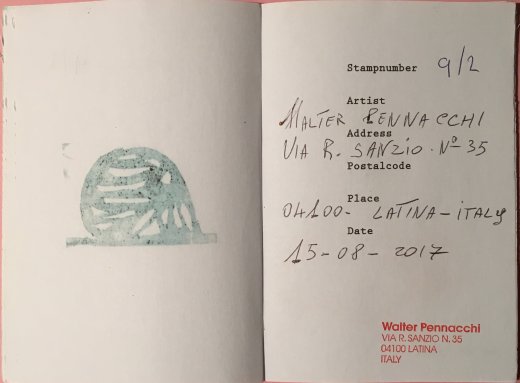 Stampnumber 9/2
Artist
WALTER PENNACCHI
Address
VIA R. SANZIO. Nº 35
Postalcode
Place
04100- LATINA-ITALY
Date
15-08-2017
Walter Pennacchi
VIA R. SANZIO N. 35
04100 LATINA
ITALY